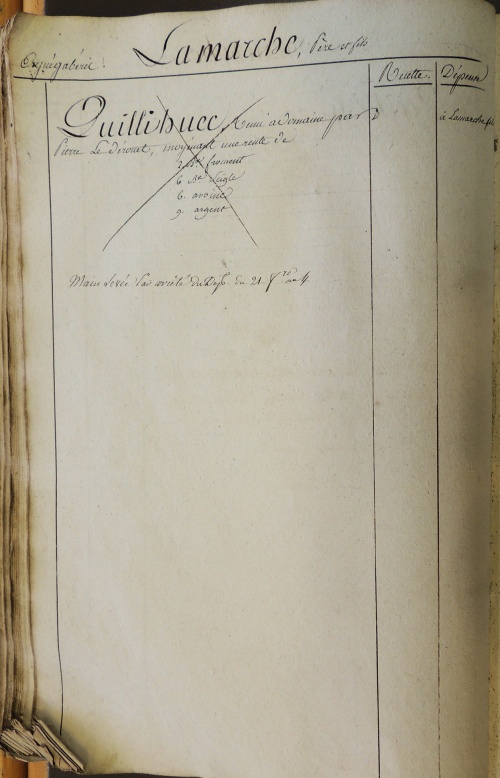 Lamarche, Père et fils
Ergué gabéric.
Recette. Dépense
Quillihuec, tenu à domaine par
à Lamarche fils
Pierre Le Dérout, moyenant une rente de
froment
6 seigle
6. avoine
9. argent
Main levée Par arrêté du Dep. du 21. an 4